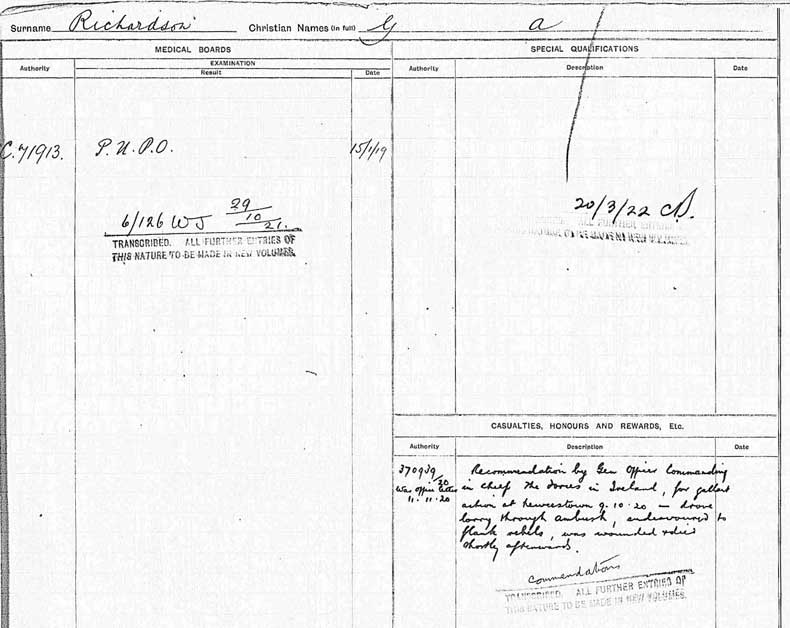 Surname Richardson Christian Names (in full) G a
MEDICAL BOARDS
Authority
EXAMINATION
Result
Date
C.71913. P.U.P.O. 15/1/19
6/126 WJ 29/10/21.
TRANSCRIBED. ALL FURTHER ENTRIES OF
THIS NATURE TO BE MADE IN NEW VOLUMES.
SPECIAL QUALIFICATIONS
Authority
Description
Date
20/3/22
ALL FURTHER ENTRIES
TO BE MADE IN NEW VOLUMES.
CASUALTIES, HONOURS AND REWARDS, Etc.
Authority
Description
Date
370939/20
War Office letter
11.11.20
Recommendation by Gen Officer Commanding
in Chief the Forces in Ireland, for gallant
action at Newcestown 9.10.20 — drove
lorry through ambush, endeavoured to
flank rebels, was wounded & died
shortly afterwards.
Commendations
TRANSCRIBED. ALL FURTHER ENTRIES OF
THIS NATURE TO BE MADE IN NEW VOLUMES.